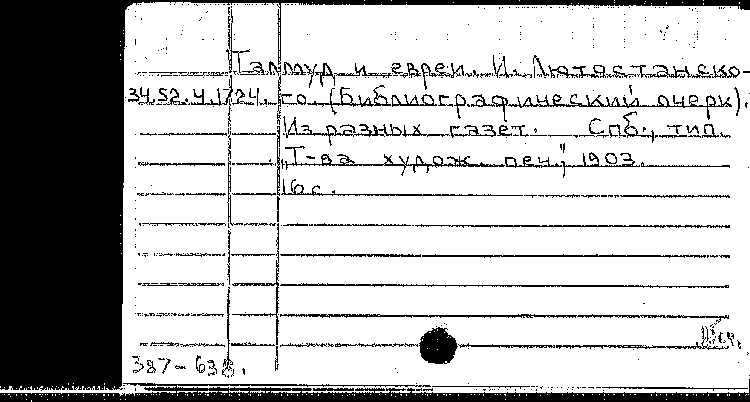 Талмуд и евреи. И. Лютостанско-
34.52.4.1724. го. (Библиографический очерк).
Из разных газет. Спб., тип.
„Т-ва худож. печ.", 1903.
16 с.
387-638.